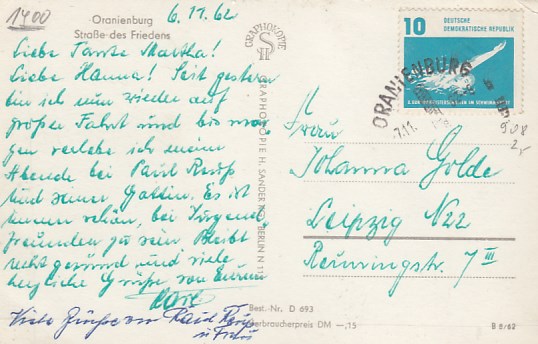 1400
Oranienburg
Straße des Friedens
6.11.62
Liebe Tante Martha!
Liebe Hanna! Seit gestern
bin ich nun wieder auf
großer Fahrt und bis mor
gen verlebe ich meine
Abende bei Paul
und seiner Gattin. Es ist
immer schön, bei
freunden zu sein. Bleibt
recht gesund und viele
herzliche Grüße von Eurem
Viele Grüße von Paul
u. Frau
GRAPHOKOPIE
SH
GRAPHOKOPIE H. SANDER KG. BERLIN N 113
Best.-Nr. D 693
Verbraucherpreis DM —,15
10 DEUTSCHE
DEMOKRATISCHE REPUBLIK
ORANIENBURG
-7.11.
908
2,-
Frau
Johanna Golde
Leipzig N22
Reuningstr. 7 III
B 8/62